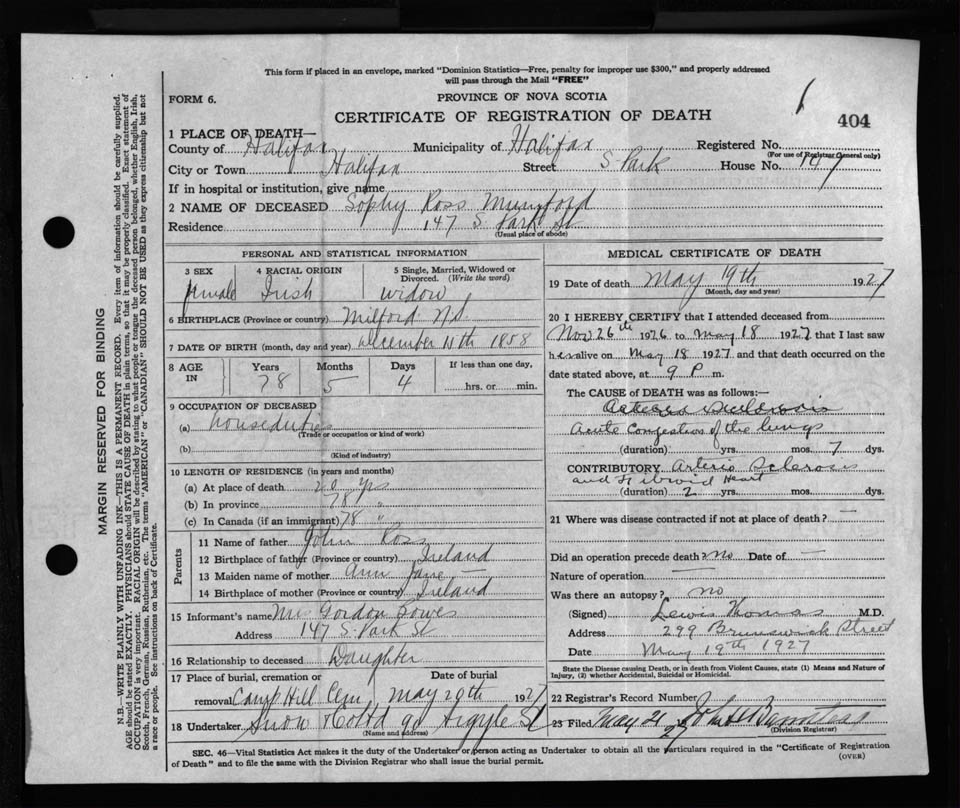 This form if placed in an envelope, marked "Dominion Statistics—Free, penalty for improper use $300," and properly addressed
will pass through the Mail "FREE"
FORM 6.
PROVINCE OF NOVA SCOTIA
CERTIFICATE OF REGISTRATION OF DEATH
404
1 PLACE OF DEATH—
County of Halifax Municipality of Halifax Registered No.
(For use of Registrar General only)
City or Town Halifax Street S Park House No. 147
If in hospital or institution, give name
2 NAME OF DECEASED Sophy Ross Mumford
Residence 147 S. Park St
(Usual place of abode)
PERSONAL AND STATISTICAL INFORMATION
3 SEX 4 RACIAL ORIGIN 5 Single, Married, Widowed or
Divorced. (Write the word)
female Irish widow
6 BIRTHPLACE (Province or country) Milford N.S.
7 DATE OF BIRTH (month, day and year) December 15th 1858
8 AGE IN Years Months Days If less than one day,
78 5 4 hrs. or min.
9 OCCUPATION OF DECEASED
(a) houseduties
(Trade or occupation or kind of work)
(b)
(Kind of industry)
10 LENGTH OF RESIDENCE (in years and months)
(a) At place of death 20 yrs
(b) In province 78 "
(c) In Canada (if an immigrant) 78 "
Parents
11 Name of father John Ross
12 Birthplace of father (Province or country) Ireland
13 Maiden name of mother Ann Jane —
14 Birthplace of mother (Province or country) Ireland
15 Informant's name Mrs Gordon Bowes
Address 147 S. Park St
16 Relationship to deceased Daughter
17 Place of burial, cremation or Date of burial
removal Camp Hill Cem May 20th 1927
18 Undertaker Snow & Co Ltd 90 Argyle St
(Name and address)
MEDICAL CERTIFICATE OF DEATH
19 Date of death May 19th 1927
(Month, day and year)
20 I HEREBY CERTIFY that I attended deceased from
Nov 26th 1926 to May 18 1927 that I last saw
her alive on May 18 1927 and that death occurred on the
date stated above, at 9 P. m.
The CAUSE OF DEATH was as follows:—
Sclerosis
Acute Congestion of the lungs
(duration) yrs. mos. 7 dys.
CONTRIBUTORY Arterio Sclerosis
and Fibroid Heart
(duration) 2 yrs. mos. dys.
21 Where was disease contracted if not at place of death? —
Did an operation precede death? no Date of —
Nature of operation —
Was there an autopsy? no
(Signed) Lewis Thomas M.D.
Address 299 Brunswick Street
Date May 19th 1927
State the Disease causing Death, or in death from Violent Causes, state (1) Means and Nature of
Injury, (2) whether Accidental, Suicidal or Homicidal.
22 Registrar's Record Number
23 Filed May 21 27
(Division Registrar)
SEC. 46—Vital Statistics Act makes it the duty of the Undertaker or person acting as Undertaker to obtain all the particulars required in the "Certificate of Registration
of Death" and to file the same with the Division Registrar who shall issue the burial permit.
(OVER)
MARGIN RESERVED FOR BINDING
N.B.—WRITE PLAINLY WITH UNFADING INK—THIS IS A PERMANENT RECORD. Every item of information should be carefully supplied.
AGE should be stated EXACTLY. PHYSICIANS should STATE CAUSE OF DEATH in plain terms, so that it may be properly classified. Exact statement of
OCCUPATION is very important. RACIAL ORIGIN will be described by stating to what people or tongue the deceased person belonged, whether English, Irish,
Scotch, French, German, Russian, Ruthenian, etc. The terms "AMERICAN" or "CANADIAN" SHOULD NOT BE USED as they express citizenship but not
a race or people. See instructions on back of Certificate.